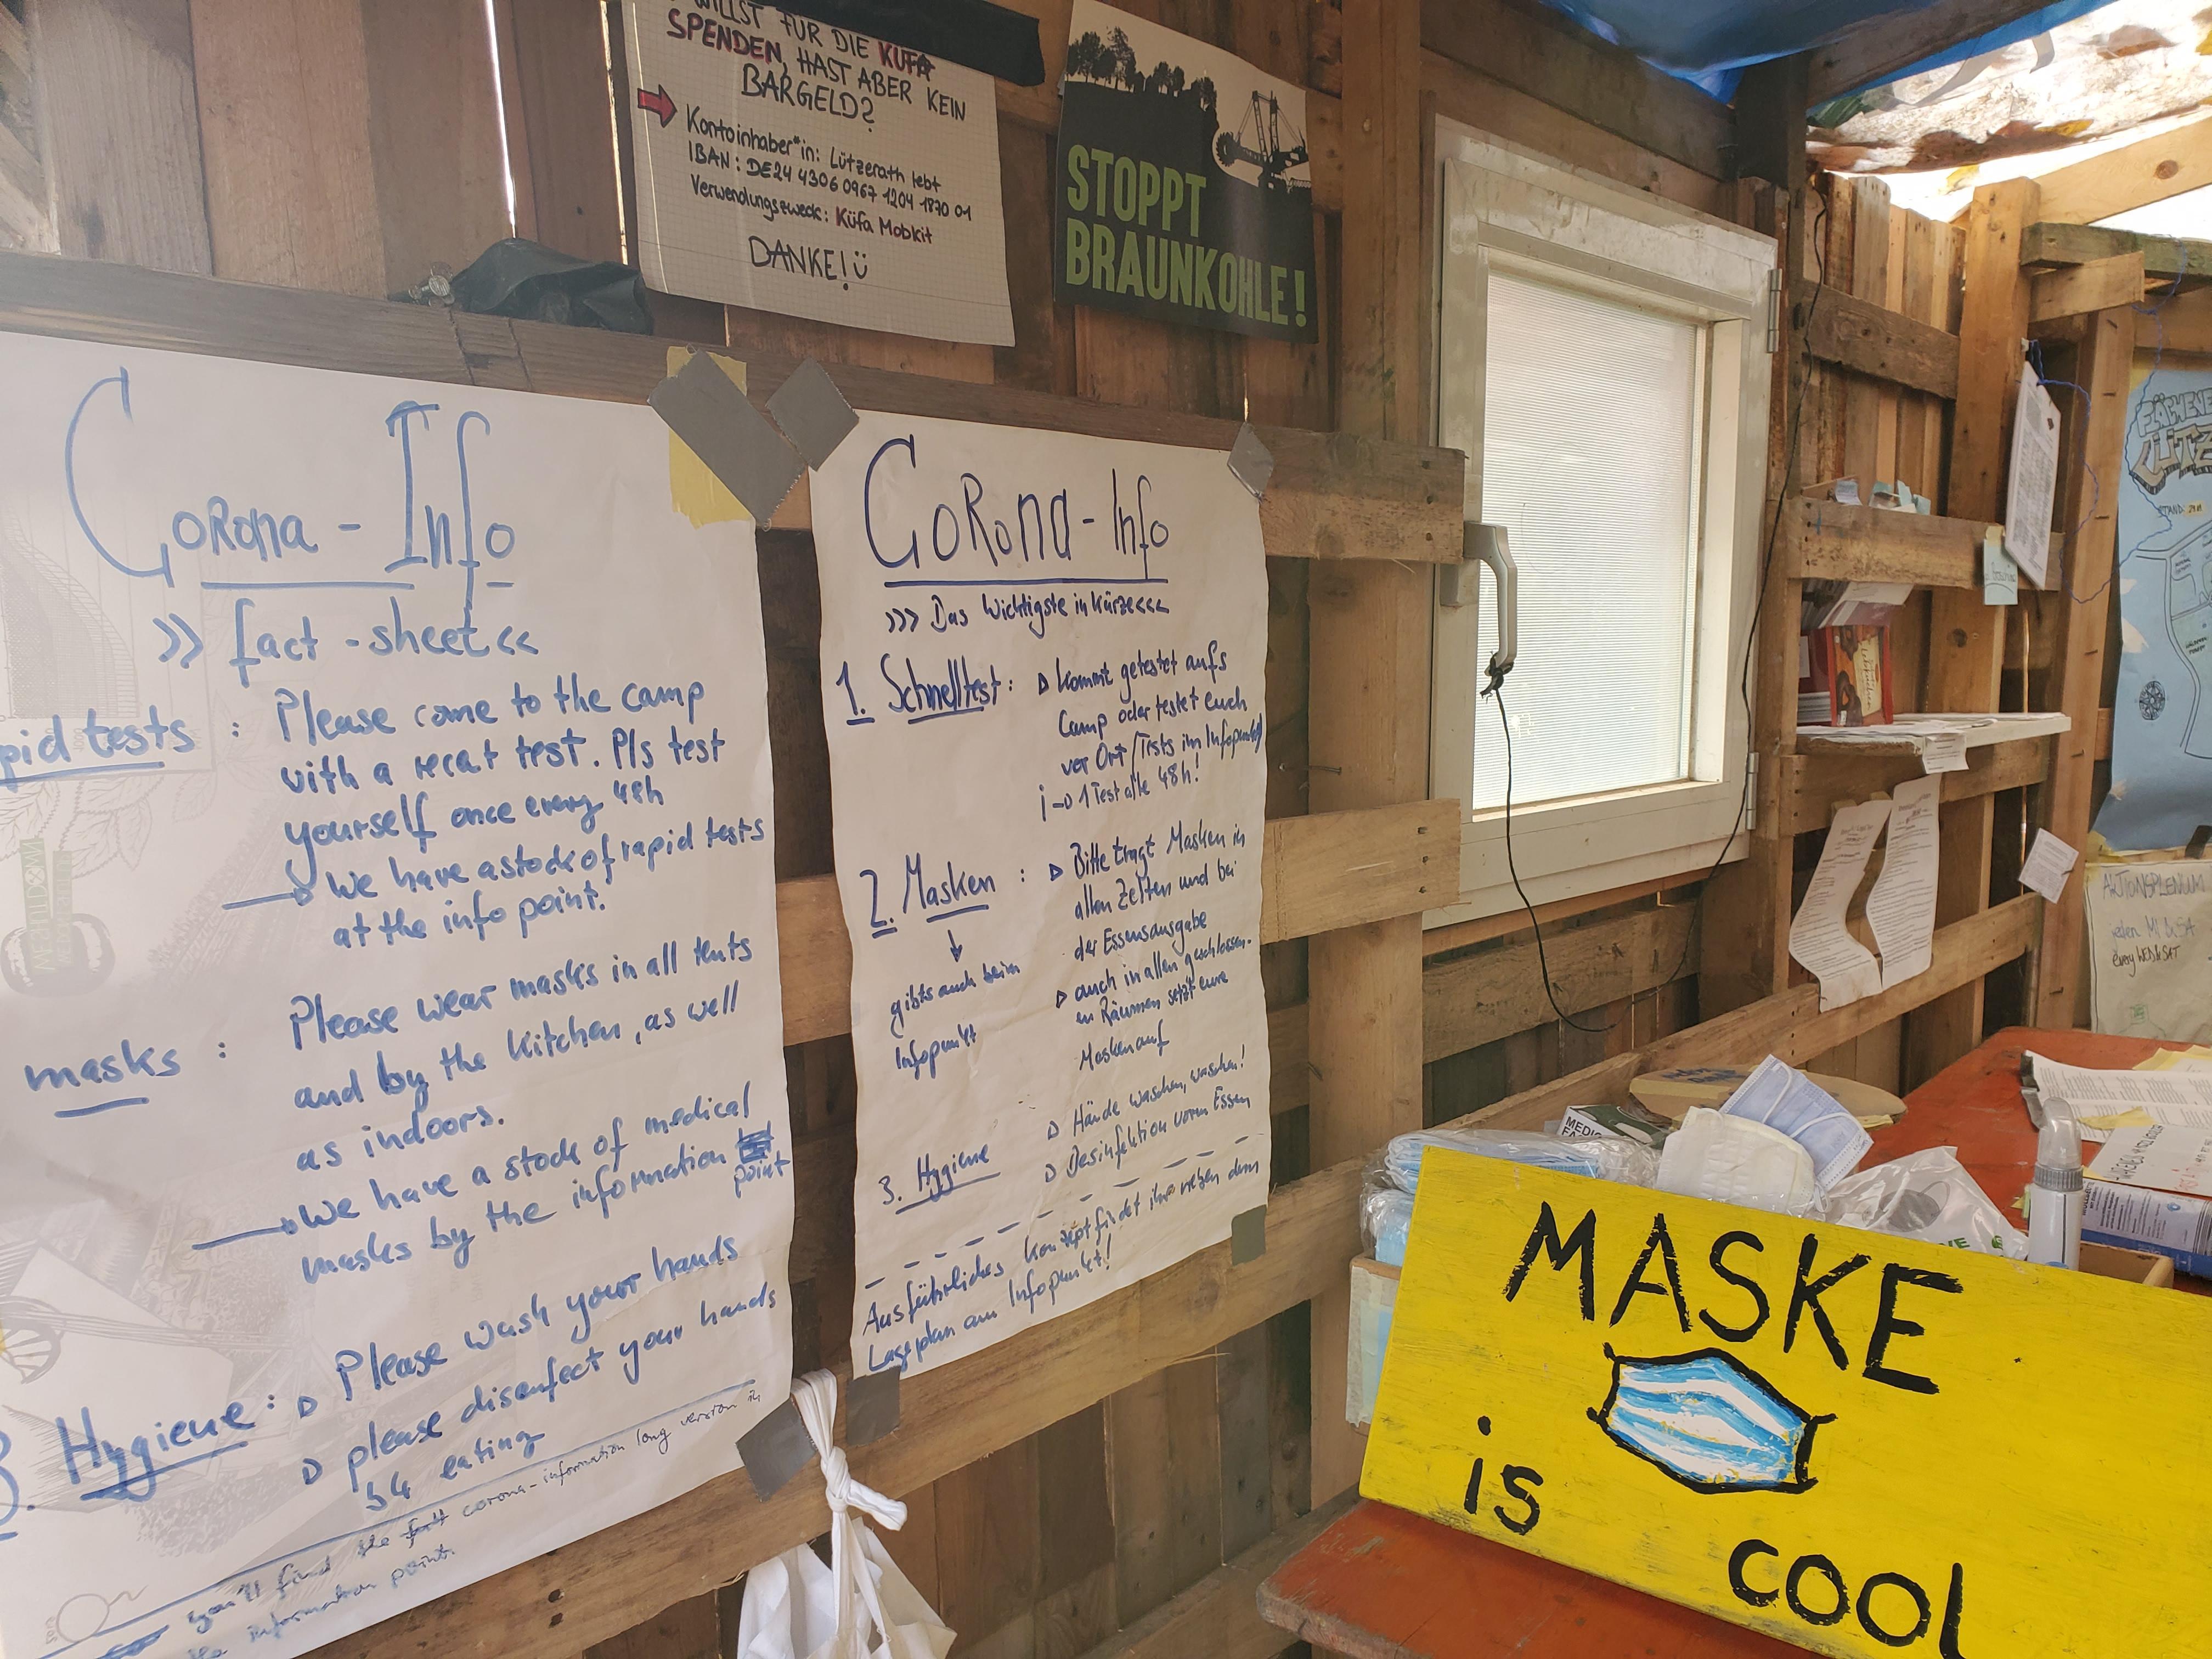 WILLST FÜR DIE KÜFA
SPENDEN, HAST ABER KEIN
BARGELD?
Kontoinhaber*in: Lützerath lebt
IBAN: DE24 4306 0967 1204 1870 01
Verwendungszweck: Küfa Mobkit
DANKE!
STOPPT
BRAUNKOHLE!
Corona-Info
>> fact-sheet <<
pid tests:
Please come to the camp
with a recat test. Pls test
yourself once every 48h
We have a stock of rapid tests
at the info point!
masks:
Please wear masks in all tents
and by the kitchen, as well
as indoors.
We have a stock of medical
masks by the information
point
3. Hygiene:
Please wash your hands
please disenfect your hands
b4 eating
you'll find the corona-information long version in
information point.
CoRona-Info
>>> Das Wichtigste in Kürze <<<
1. Schnelltest:
Kommt getestet aufs
Camp oder testet euch
vor Ort (Tests im Infopunkt)
1 Test alle 48h!
2. Masken:
gibts auch beim
Infopunkt
Bitte tragt Masken in
allen Zelten und bei
der Essensausgabe
auch in allen geschlossen-
en Räumen setzt eure
Masken auf
3. Hygiene
Hände waschen, waschen!
Desinfektion vorm Essen
Ausführliches Konzept findet ihr neben dem
Lageplan am Infopunkt!
LÜTZ
STAND:
AKTIONSPLENUM
jeden MI & SA
every WED & SAT
MASKE
is
COOL